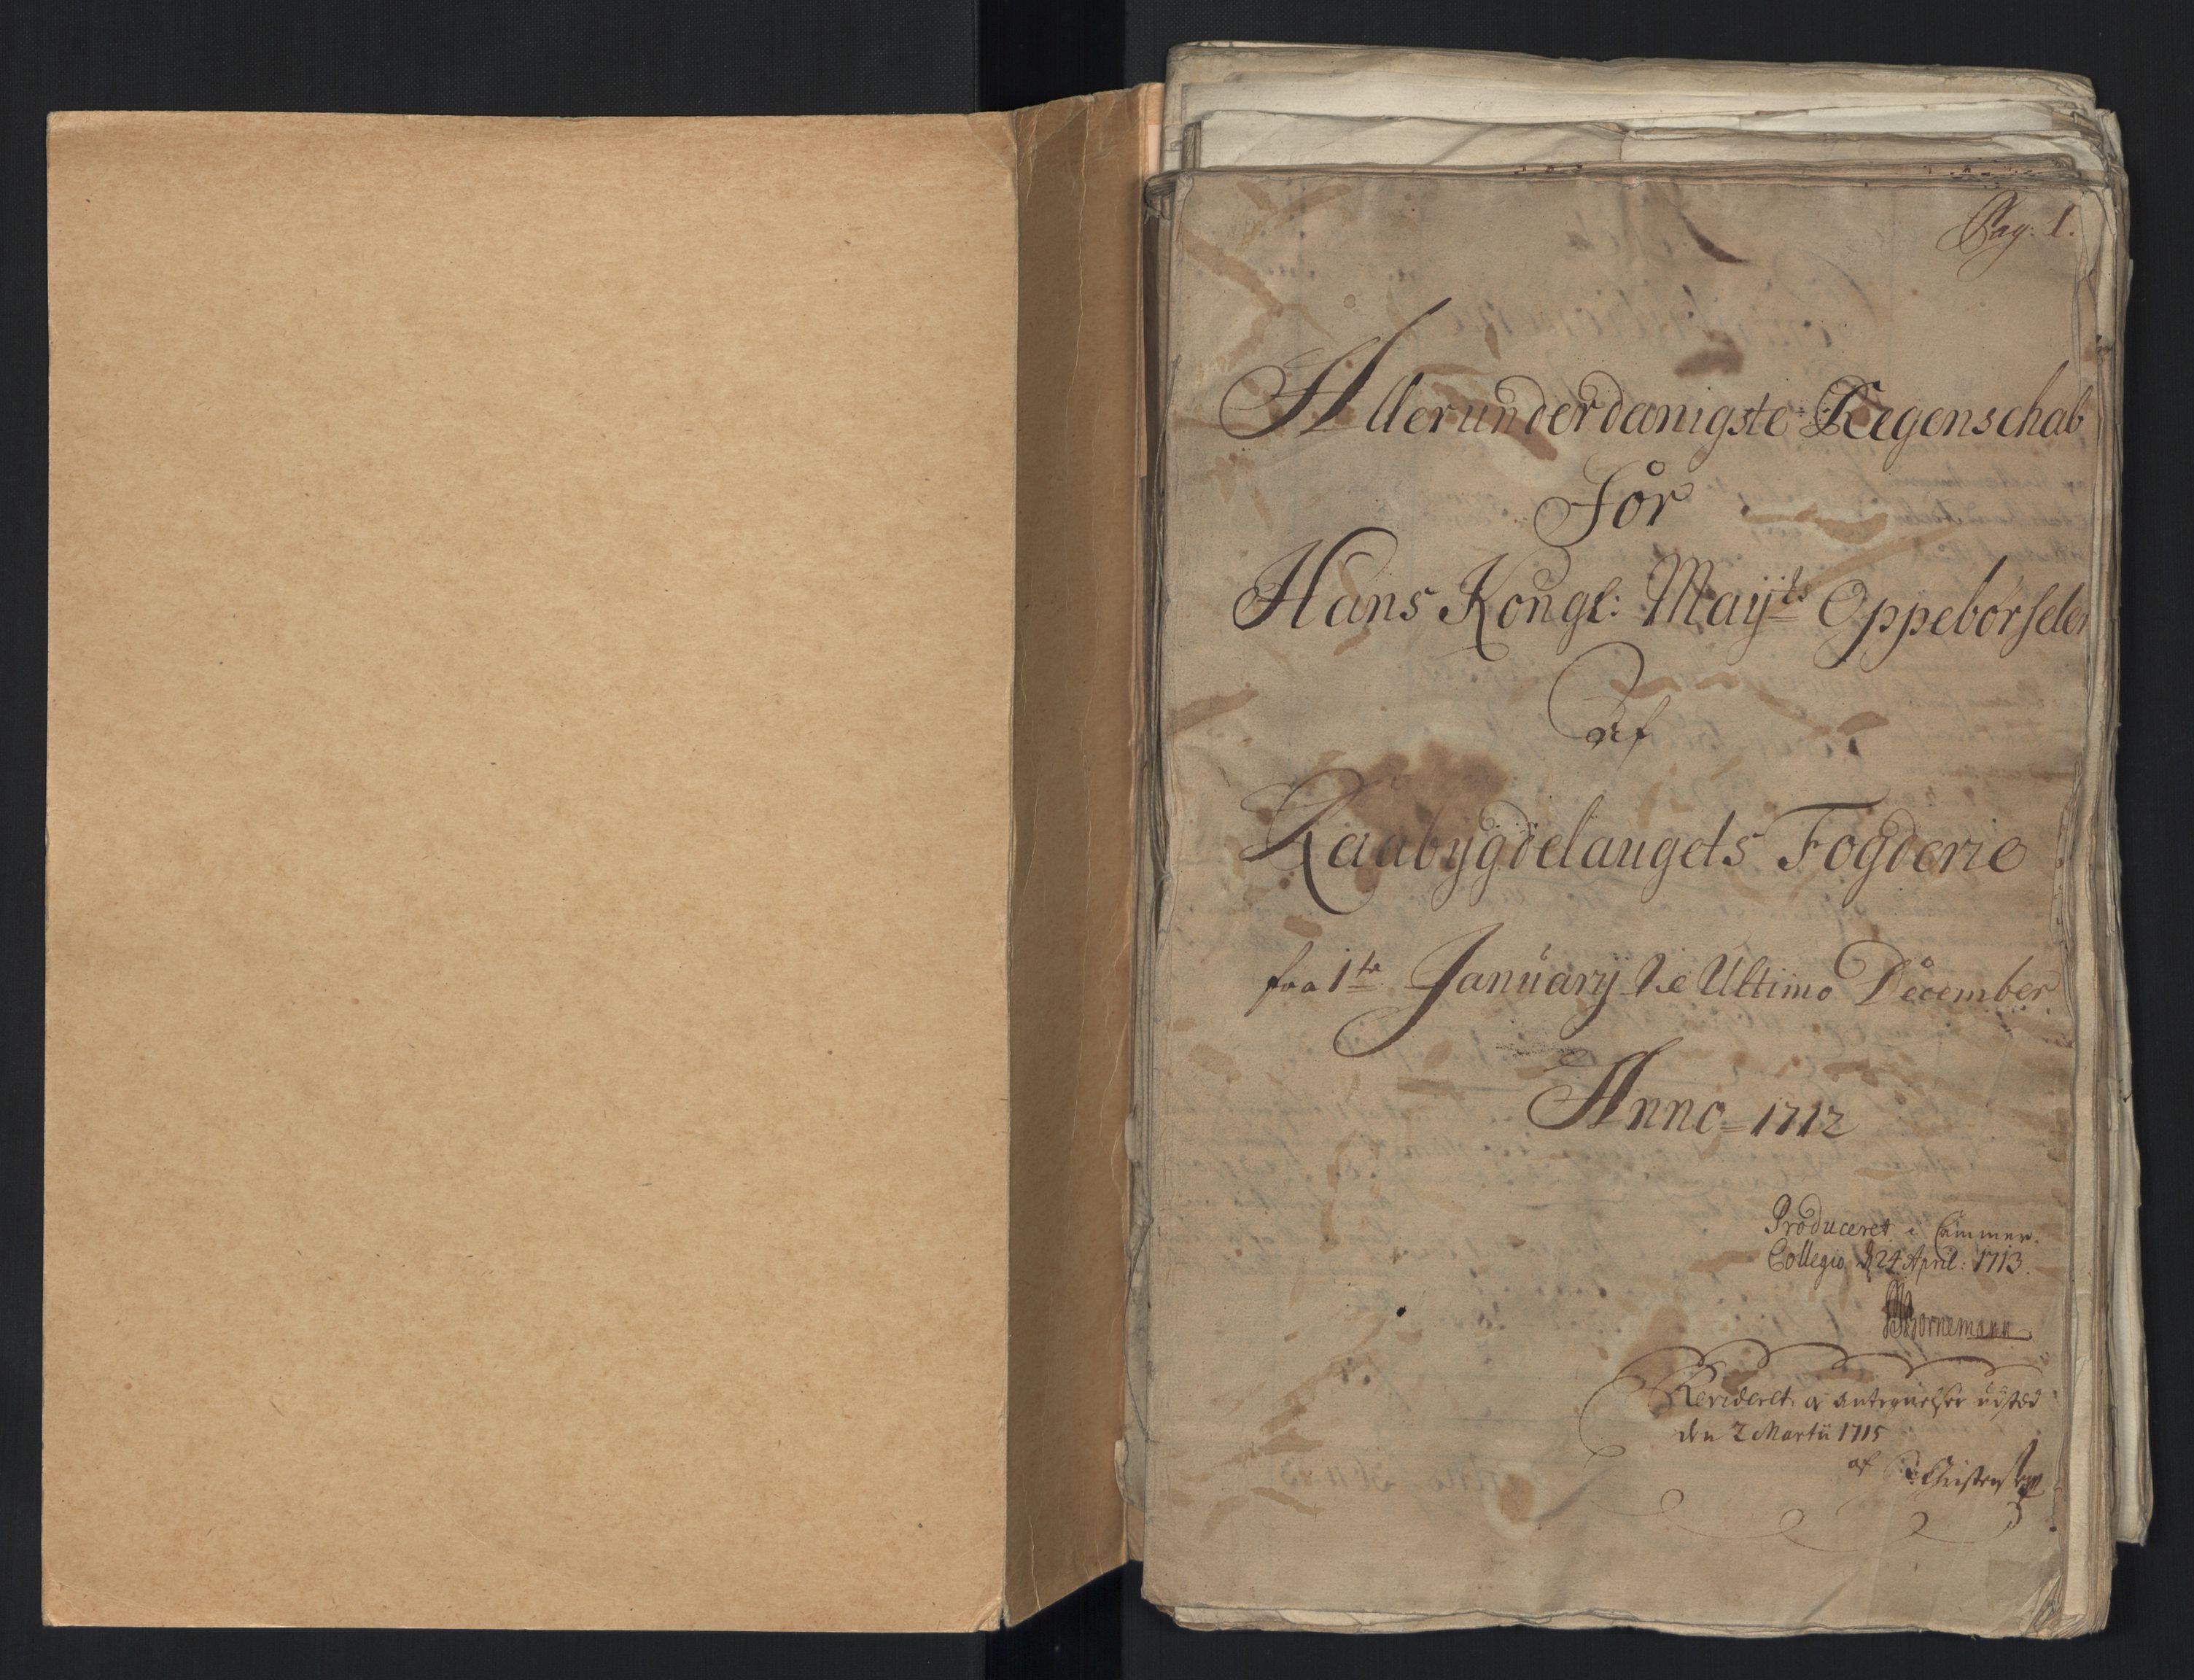 Pag: 1.
Allerunderdanigste Regenschab
For
Hans Kongl: Mayts Oppebørseler
af
Raabygdelaugets Fogderie
fra 1te Januarij til Ultimo December
Anno = 1712
Produceret i Cammer
Collegio d 24 April: 1713.
Bornemann
Revideret og antegnelser udsted
den 2 Martii 1715
af